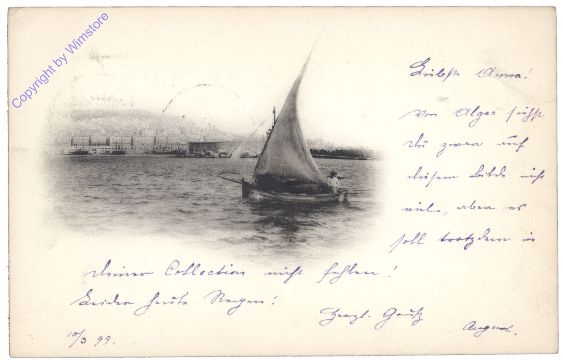 Copyright by Wimstore
Liebste Anna!
Von Alger siehst
Du zwar auf
diesem Bilde nicht
viel, aber es
soll trotzdem in
Deiner Collection nicht fehlen!
Leider heute Regen!
Herzl. Gruß
August.
10/3 99.